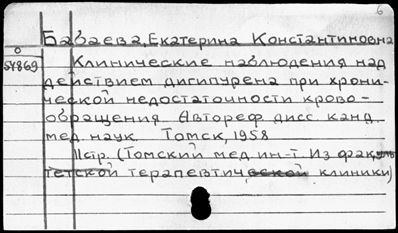 6
Бабаева, Екатерина Константиновна
О
54869
Клинические наблюдения над
действием дигипурена при хрони-
ческой недостаточности крово-
обращения. Автореф дисс канд.
мед. наук. Томск, 1958
11стр. (Томский мед. ин-т. Из факуль
тетской терапевтической клиники)